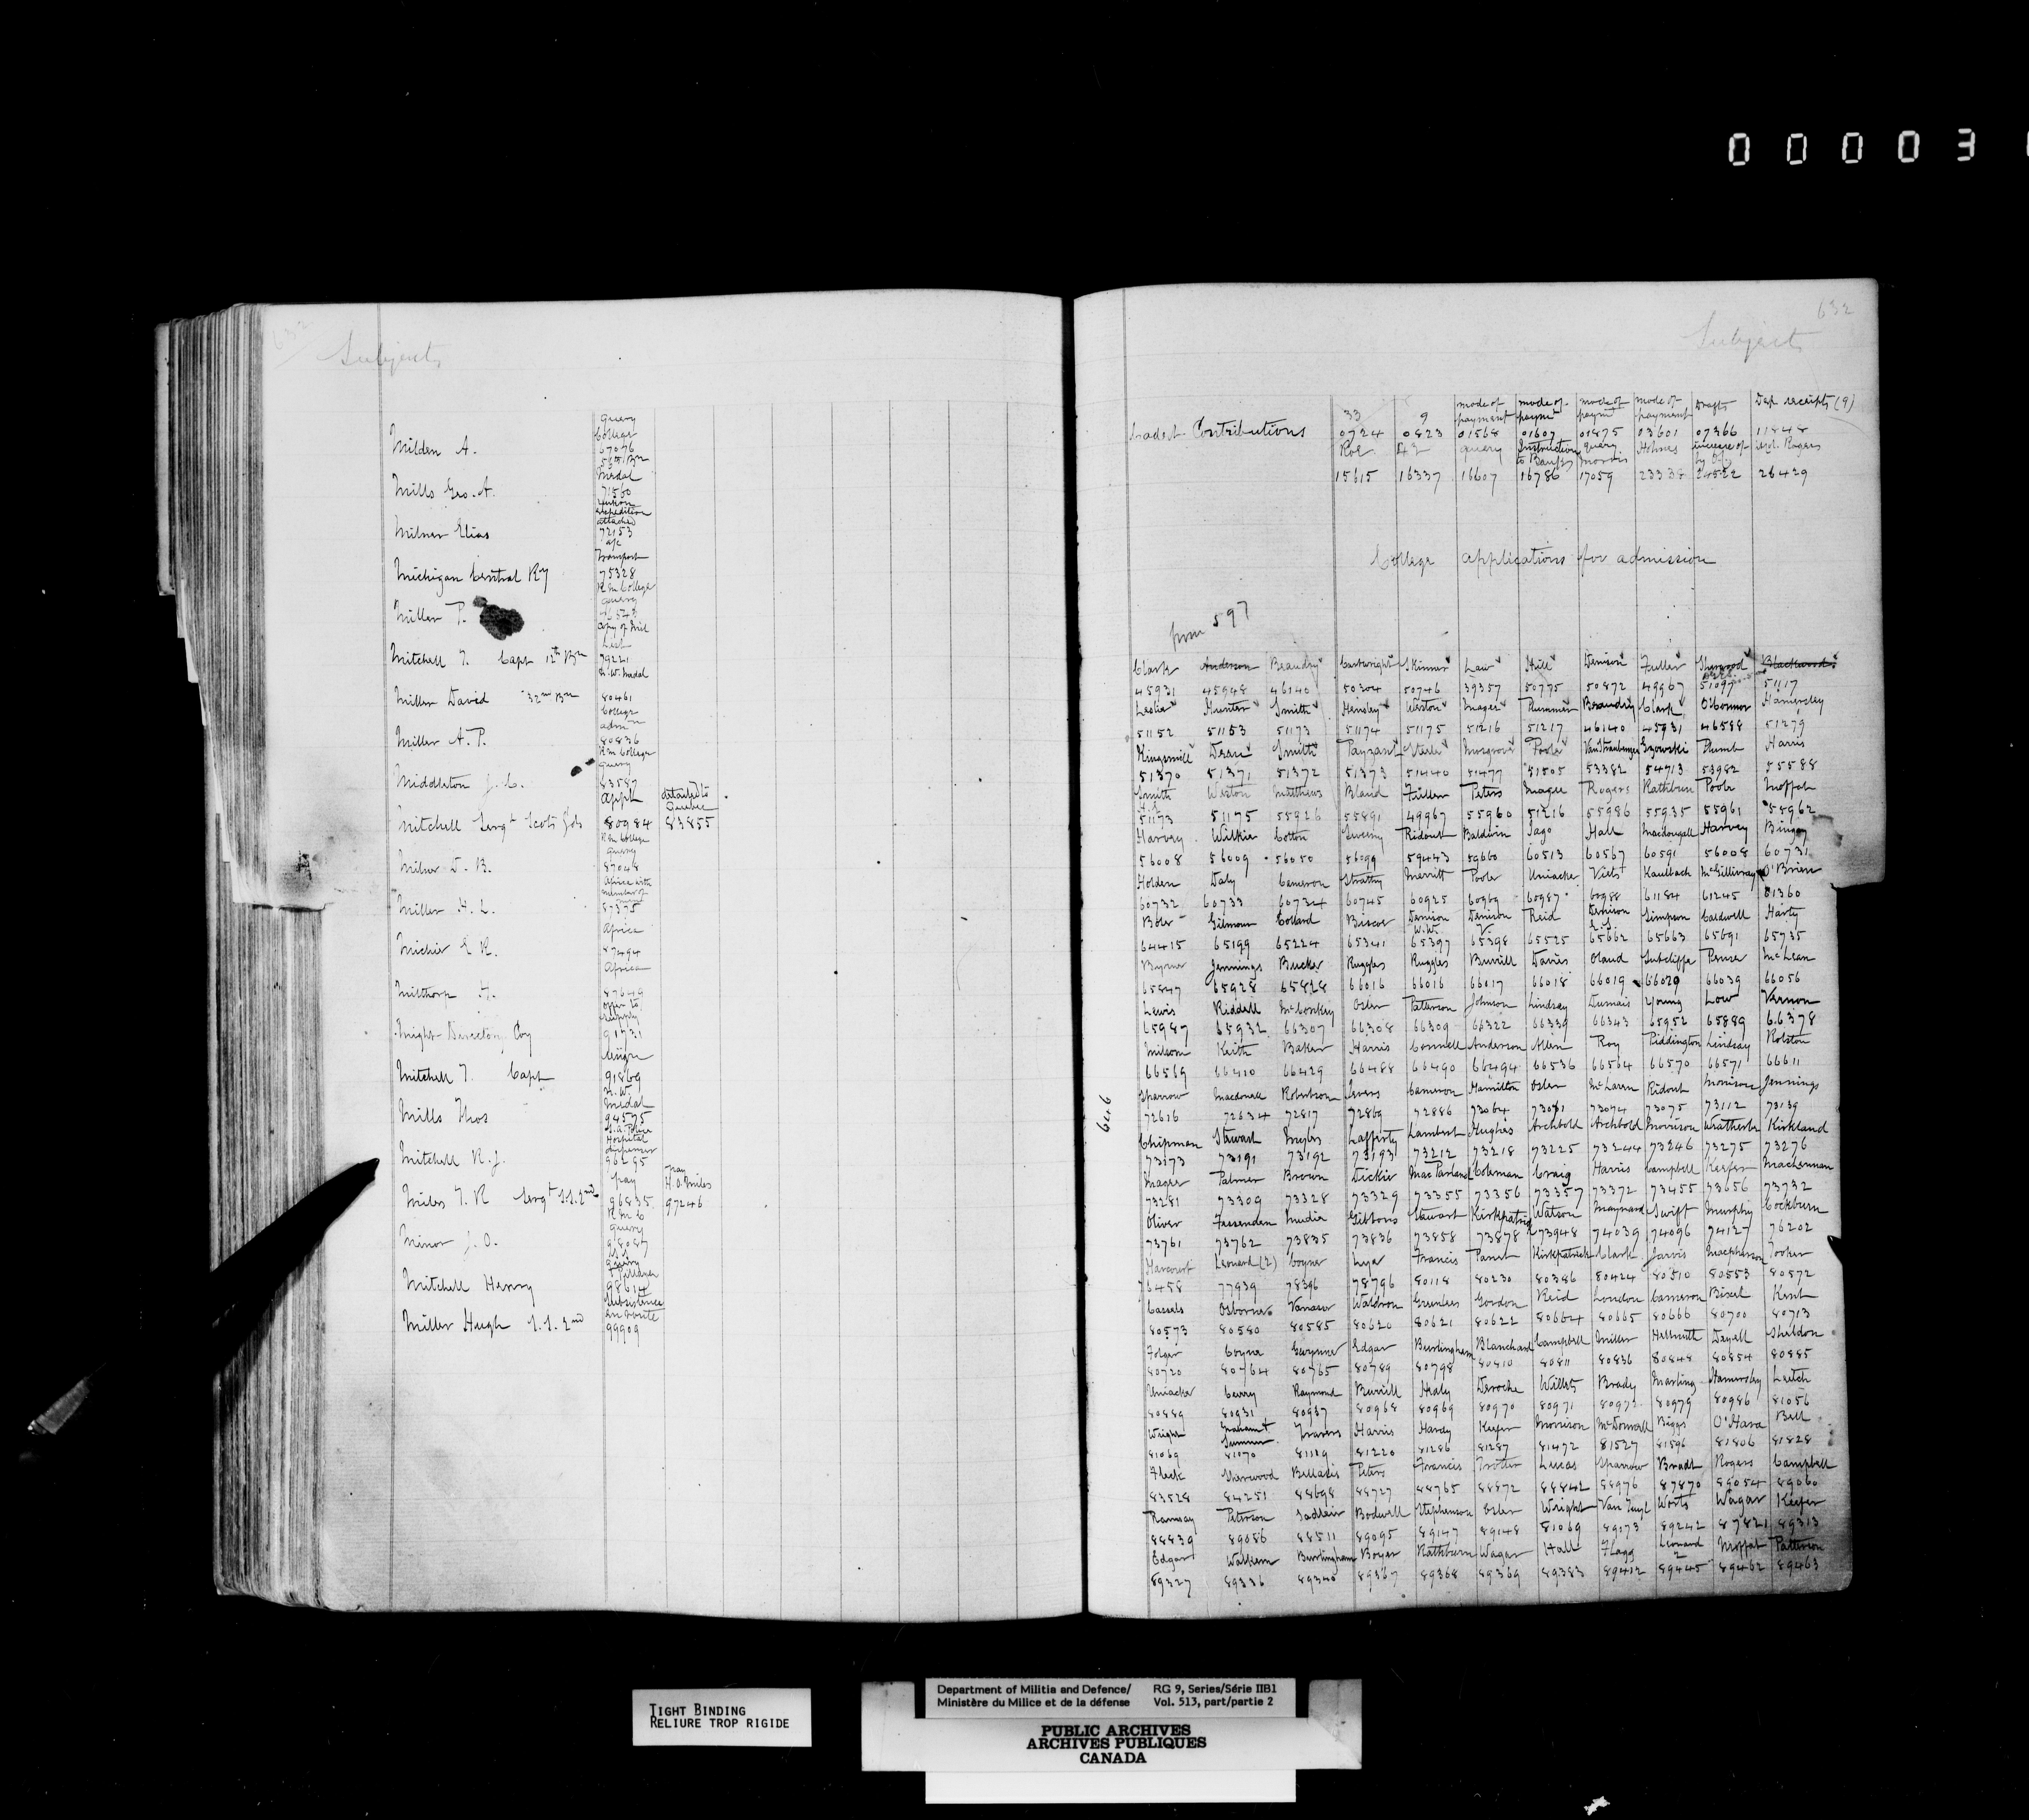 0 0 0 0 3
632
Subjects
Query
College
Milden A. 67076
56th Bn
Medal
Mills Geo. A. 71560
Yukon
expedition
attached
Milner Elias 72153
a/c
Transport
Michigan Central Ry 75328
R.M. College
query
Miller P.
Copy of Mil
List
Mitchell T. Capt 12th Bn 79221
N.W. Medal
Miller David 32nd Bn 80461
College
admn
Miller A.P. 80836
R.M. College
Query
Middleton J.C. 83587
Appt detailed to
Quebec
Mitchell Sergt Scots Gds 80984 83855
R.M. College
Query
Milner D.B. 87048
Africa with
Miller H.L. 87375
Africa
Michie E R. 87494
Africa
Milthorp H. 87649
offer to
supply
Might Directory Coy 91731
Mitchell T. Capt 91869
N.W.
Medal
Mills Thos 94575
S.A. Police
Hospital
dispenser
Mitchell R.J. 96295
Pay Pay
H.O. Miles
Miles T. R Sergt S.S. 2nd 96835 97246
R M C
Query
Minor J.O. 98087
Mitchell Henry 98614
Subsistence
en route
Miller Hugh S.S. 2nd 99909
632
Subjects
33 9 mode of payment mode of paymt mode of paymt mode of payment Drafts Dep receipts (9)
Contributions 0724 0823 01568 01607 01875 03601 07366 11848
Roe 42 query Instruction to Banks query Morris Holmes increase of Rogers
15615 16337 16607 16786 17059 23338 24522 26429
College applications for admission
from 597
Clark Anderson Beaudry Cartwright Skinner Law Hill Denison Fuller Sherwood Blackwood
45931 45948 46140 50304 50746 39357 50775 50872 49967 51097 51117
Leslie Hunter Smith Hensley Weston Magee Plummer Beaudry Clark O'Connor Hamersley
51152 51153 51173 51174 51175 51216 51217 46140 45931 46588 51279
Kingsmill Deane Smith Payzant Steele Musgrove Poole VanStraubenzee Gzowski Plumb Harris
51370 51371 51372 51373 51440 51477 51505 53382 54713 53982 55588
Smith Weston Matthews Bland Fuller Peters Magee Rogers Rathbun Poole Moffat
51173 51175 55926 55891 49967 55960 51216 55986 55935 55961 55962
Harvey Wilkie Cotton Sweeny Ridout Baldwin Jago Hall Macdougall Harvey Bingay
56008 56009 56050 56099 59443 59660 60513 60567 60591 56008 60731
Holden Daly Cameron Strathy Merritt Poole Uniacke Viets Kaulbach McGillivray O'Brien
60732 60733 60734 60745 60925 60969 60987 60988 61184 61245 61360
Boter Gilmour Collard Biscoe Denison Denison Reid Denison Simpson Caldwell Harty
W.W. V
64415 65199 65224 65341 65397 65398 65525 65662 65663 65691 65735
Byrne Jennings Bucke Ruggles Ruggles Burrill Davies Oland Sutcliffe Penser McLean
65847 65928 65828 66016 66016 66017 66018 66019 66020 66039 66056
Lewis Riddell McConkey Osler Patterson Johnson Lindsay Dumais Young Low Vernon
65987 65932 66307 66308 66309 66322 66339 66343 65952 65889 66378
Milsom Keith Baker Harris Connell Anderson Allen Roy Piddington Lindsay Rolston
66569 66410 66429 66488 66490 66494 66536 66564 66570 66571 66611
Sparrow Macdonell Robertson Ievers Cameron Hamilton Osler McLaren Ridout Morrison Jennings
646
72616 72634 72817 72869 72886 73064 73071 73074 73075 73112 73139
Chipman Stewart Myles Lafferty Lambert Hughes Archbold Archbold Morrison Weatherbe Kirkland
73173 73191 73192 73193 73212 73218 73225 73244 73246 73275 73276
Magee Palmer Brown Dickie MacFarland Coleman Craig Harris Campbell Keefer
73281 73309 73328 73329 73355 73356 73357 73372 73455 73656 73732
Oliver Fessenden Mudie Gibbons Stewart Kirkpatrick Watson Maynard Swift Murphy Cockburn
73761 73762 73835 73836 73858 73878 73948 74039 74096 74127 76202
Harcourt Leonard (2) Coyne Lyer Francis Panet Kirkpatrick Clark Jarvis Macpherson Tooker
76458 77939 78396 78796 80118 80230 80386 80424 80510 80553 80572
Cassels Osborne Vanasse Waldron Greenlees Gordon Reid London Cameron Bixel Kent
80573 80580 80585 80620 80621 80622 80664 80665 80666 80700 80713
Folger Coyne Gwynne Edgar Burlingham Blanchard Campbell Miller Hellmuth Deyell Sheldon
80720 80764 80765 80789 80798 80810 80811 80836 80848 80854 80885
Uniacke Curry Raymond Burrill Healy Deroche Willets Brady Marling Hamersley Leitch
80889 80931 80937 80968 80969 80970 80971 80972 80979 80986 81056
Wright Graham & Sumner Travers Harris Hardy Keefer Morrison McDonnell Biggs O'Hara Bell
81069 81070 81119 81220 81286 81287 81472 81527 81596 81806 81828
Fleck Sherwood Bellasis Peters Francis Trotter Lucas Sparrow Bradt Rogers Campbell
83528 84251 88698 88727 88765 88872 88842 88976 87870 89054 89060
Ramsay Peterson Sadleir Bodwell Stephenson Osler Wright Van Tuyl Worts Wagar Keefer
88839 89086 88511 89095 89147 89148 81069 89073 89242 87821 89313
Edgar Walkem Burlingham Boyer Rathburn Wagar Hall Flagg Leonard Moffat Patterson
2
89327 89336 89340 89367 89368 89369 89383 89412 89445 89462 89463
TIGHT BINDING
RELIURE TROP RIGIDE
Department of Militia and Defence/ RG 9, Series/Série IIB1
Ministère du Milice et de la défense Vol. 513, part/partie 2
PUBLIC ARCHIVES
ARCHIVES PUBLIQUES
CANADA